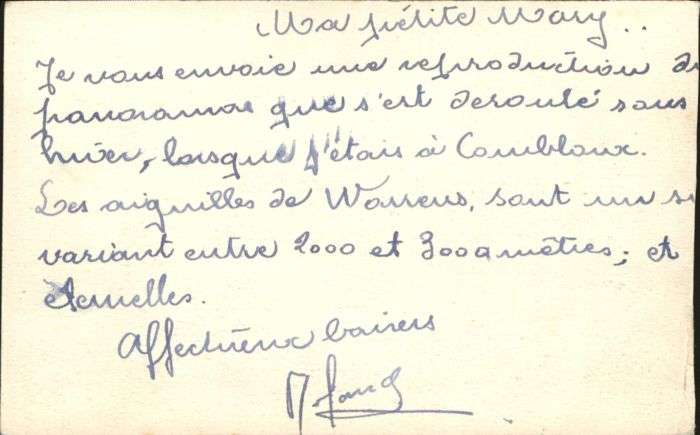 Ma petite Mary..
Je vous envoie une reproduction du
panorama que s'est deroulé sous
hiver, lorsque j'étais à Combloux.
Les aiguilles de Warrens, sont un
variant entre 2000 et 3000 mètres; et
eternelles.
Affectueux baisers